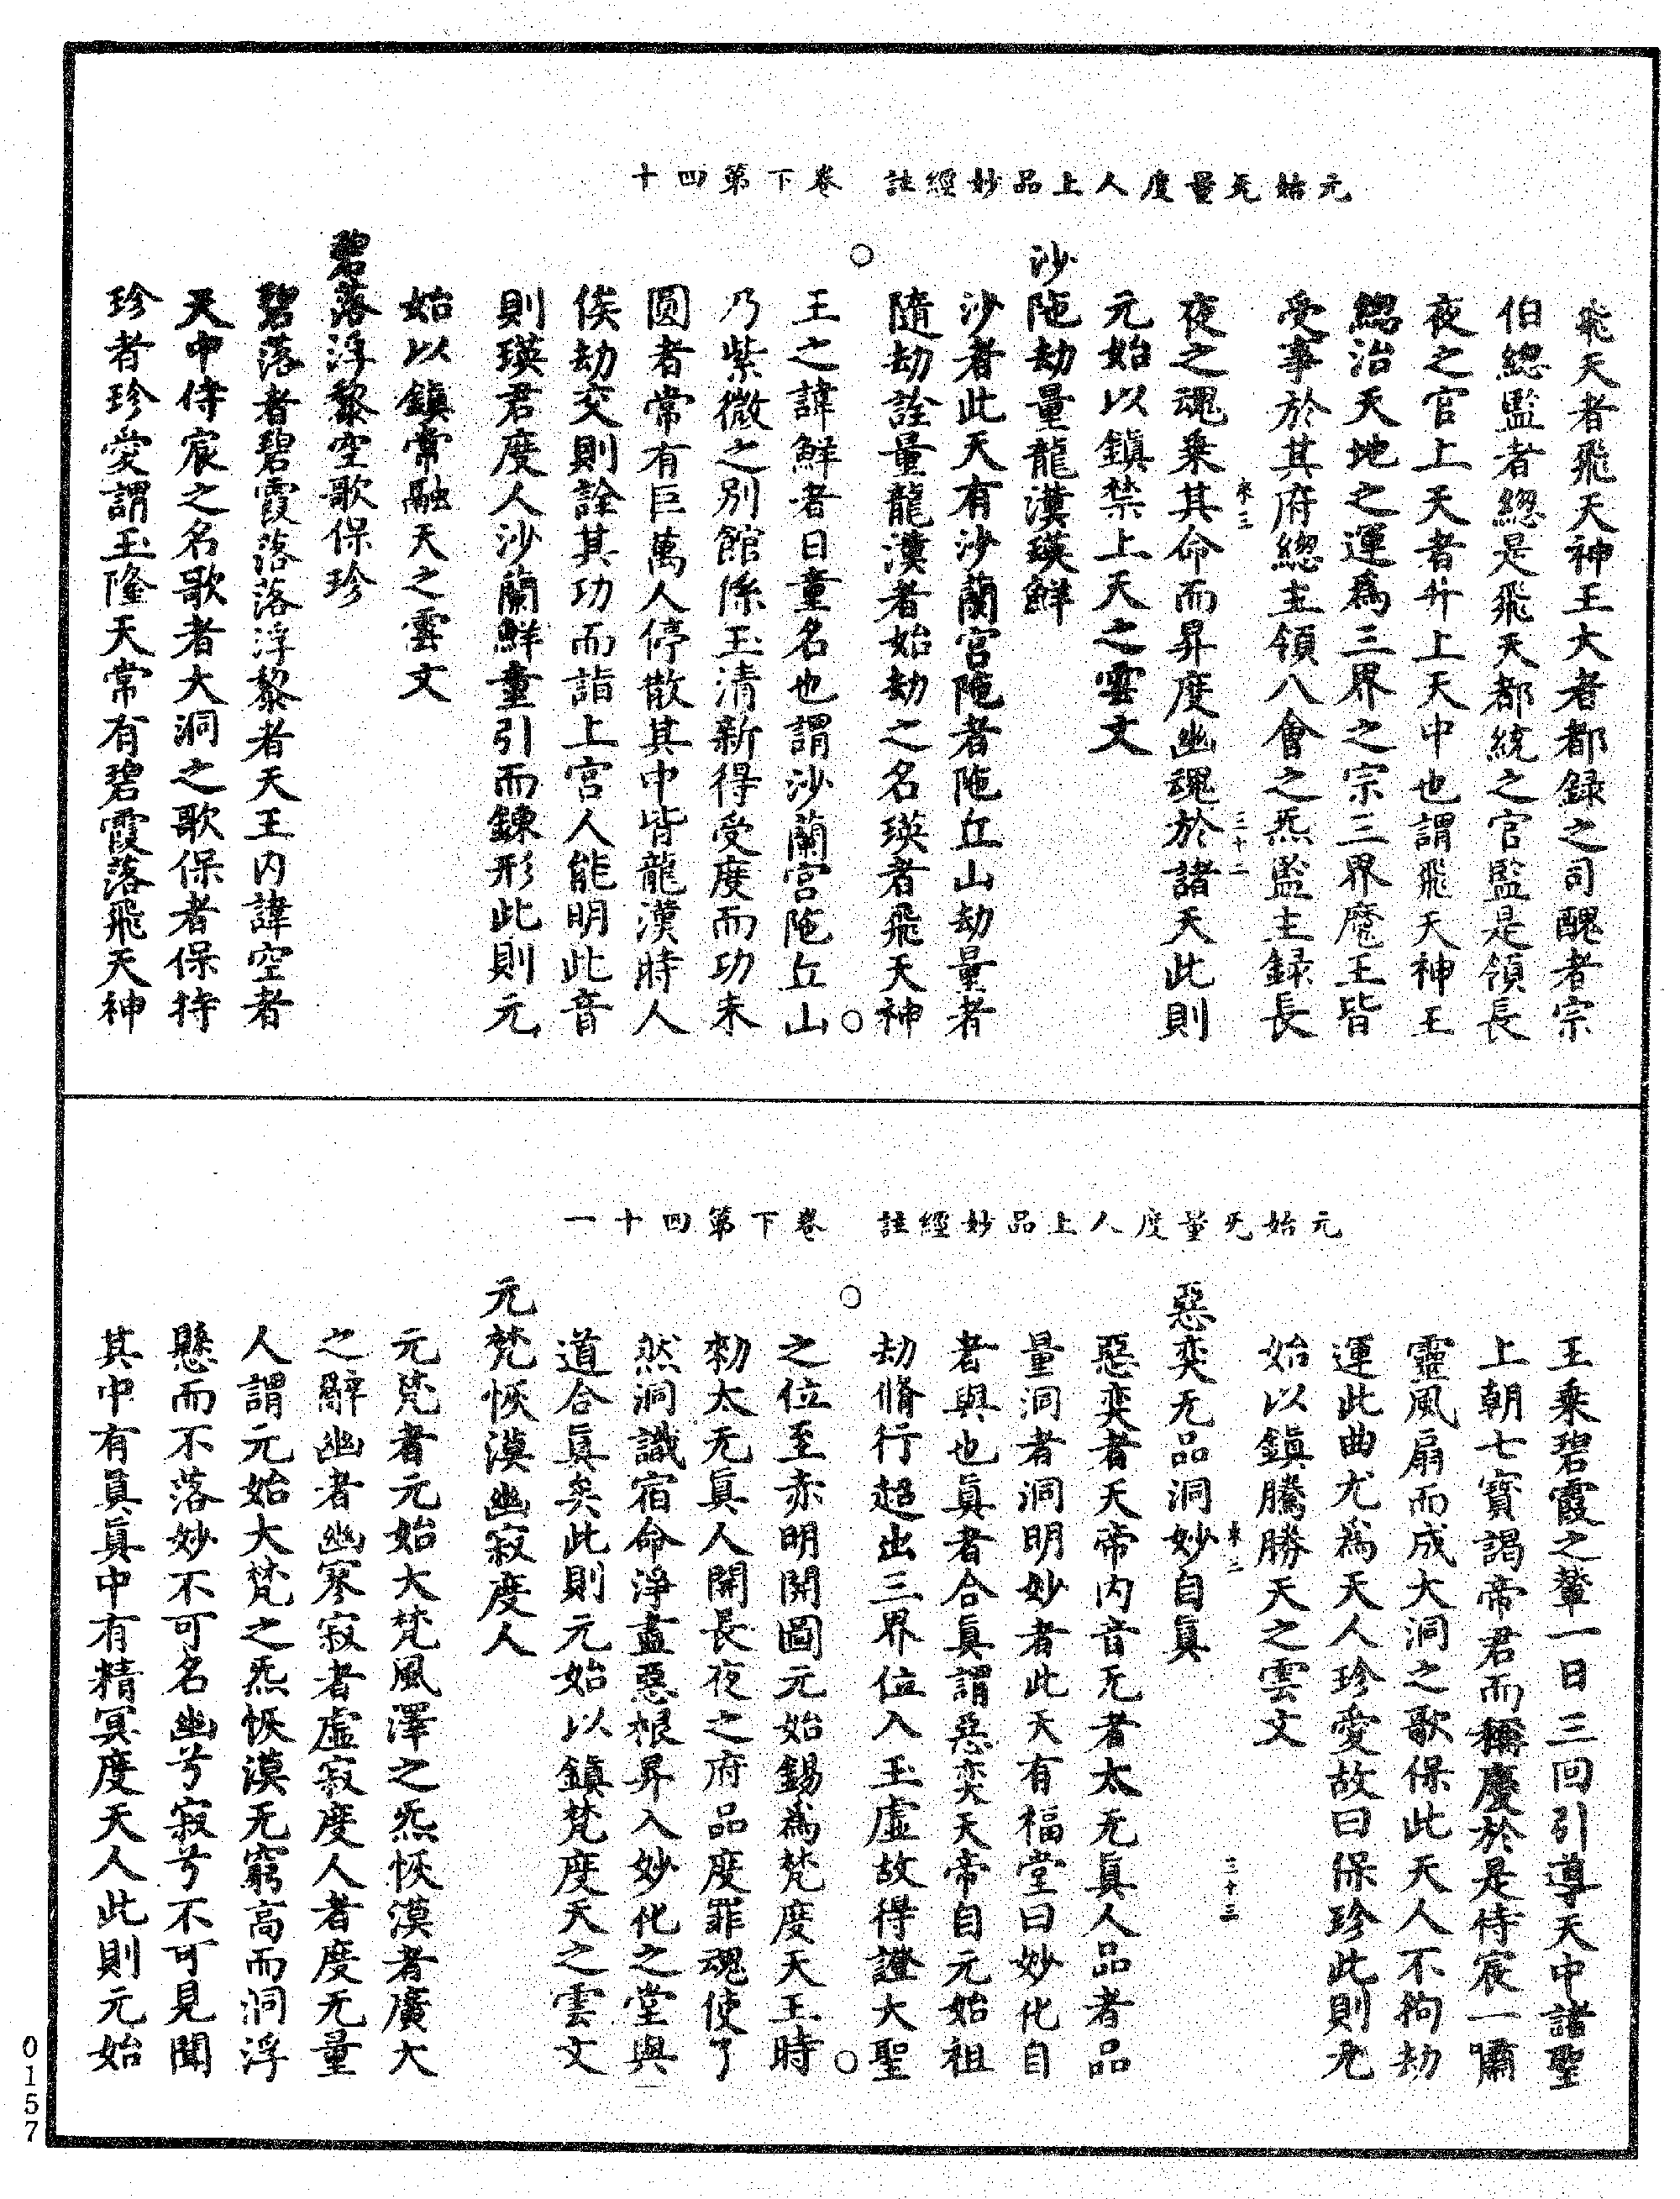 元始无量度人上品妙經註　卷下第四十
飛天者飛天神王大者都録之司醜者宗
伯總監者總是飛天都統之官監是領長
夜之官上天者升上天中也謂飛天神王
總治天地之運爲三界之宗三界魔王皆
受事於其府總主領八會之炁監主録長
來三　三十二
夜之魂乘其命而昇度幽魂於諸天此則
元始以鎮禁上天之雲文
沙陁劫量龍漢瑛鮮
沙者此天有沙蘭宮陁者陁丘山劫量者
隨劫詮量龍漢者始劫之名瑛者飛天神
王之諱鮮者日童名也謂沙蘭宮陁丘山
乃紫微之别館係玉清新得受度而功未
圓者常有巨萬人停散其中皆龍漢時人
俟劫交則詮其功而詣上宮人能明此音
則瑛君度人沙蘭鮮童引而錬形此則元
始以鎮常融天之雲文
碧落浮黎空歌保珍
碧落者碧霞落落浮黎者天王内諱空者
天中侍宸之名歌者大洞之歌保者保持
珍者珍愛謂玉隆天常有碧霞落飛天神
元始无量度人上品妙經註　卷下第四十一
王乘碧霞之輦一日三回引導天中諸聖
上朝七寶謁帝君而稱慶於是侍宸一嘯
靈風扇而成大洞之歌保此天人不拘劫
運此曲尤爲天人珍愛故曰保珍此則元
始以鎮騰勝天之雲文
來二　三十三
惡奕无品洞妙自真
惡奕者天帝内音无者太无真人品者品
量洞者洞明妙者此天有福堂曰妙化自
者與也真者合真謂惡奕天帝自元始祖
劫脩行超出三界位入玉虛故得證大聖
之位至赤明開圖元始錫爲梵度天王時
勑太无真人開長夜之府品度罪魂使了
然洞識宿命淨盡惡根昇入妙化之堂與
道合真矣此則元始以鎮梵度天之雲文
元梵恢漠幽寂度人
元梵者元始大梵風澤之炁恢漠者廣大
之辭幽者幽寒寂者虛寂度人者度无量
人謂元始大梵之炁恢漠无窮高而洞浮
懸而不落妙不可名幽兮寂兮不可見聞
其中有真真中有精冥度天人此則元始
0157